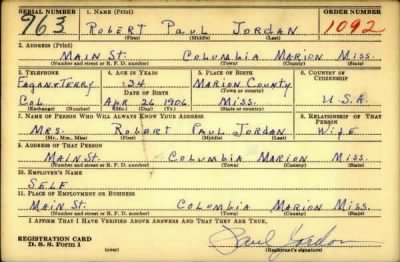 SERIAL NUMBER 1. NAME (Print) ORDER NUMBER
963 ROBERT PAUL JORDAN 1092
(First) (Middle) (Last)
2. ADDRESS (Print)
MAIN St. COLUMBIA MARION MISS.
(Number and street or R. F. D. number) (Town) (County) (State)
3. TELEPHONE 4. AGE IN YEARS 5. PLACE OF BIRTH 6. COUNTRY OF CITIZENSHIP
34 MARION COUNTY
(Town or county)
DATE OF BIRTH
Col. APR 26 1906 MISS. U.S.A.
(Exchange) (Number) (Mo.) (Day) (Yr.) (State or country)
7. NAME OF PERSON WHO WILL ALWAYS KNOW YOUR ADDRESS 8. RELATIONSHIP OF THAT PERSON
MRS. ROBERT PAUL JORDAN WIFE
(Mr., Mrs., Miss) (First) (Middle) (Last)
9. ADDRESS OF THAT PERSON
MAIN St. COLUMBIA MARION MISS.
(Number and street or R. F. D. number) (Town) (County) (State)
10. EMPLOYER'S NAME
SELF
11. PLACE OF EMPLOYMENT OR BUSINESS
MAIN St. COLUMBIA MARION MISS.
(Number and street or R. F. D. number) (Town) (County) (State)
I AFFIRM THAT I HAVE VERIFIED ABOVE ANSWERS AND THAT THEY ARE TRUE.
REGISTRATION CARD
D. S. S. Form 1 (over) Paul Jordan
(Registrant's signature)